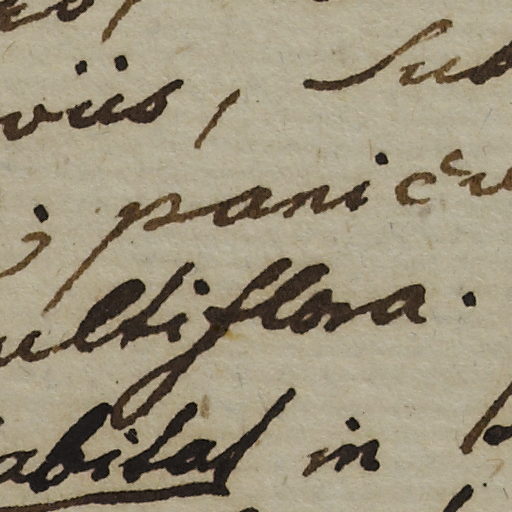 viis, Sub
; panicu
ultiflora.
abitat in